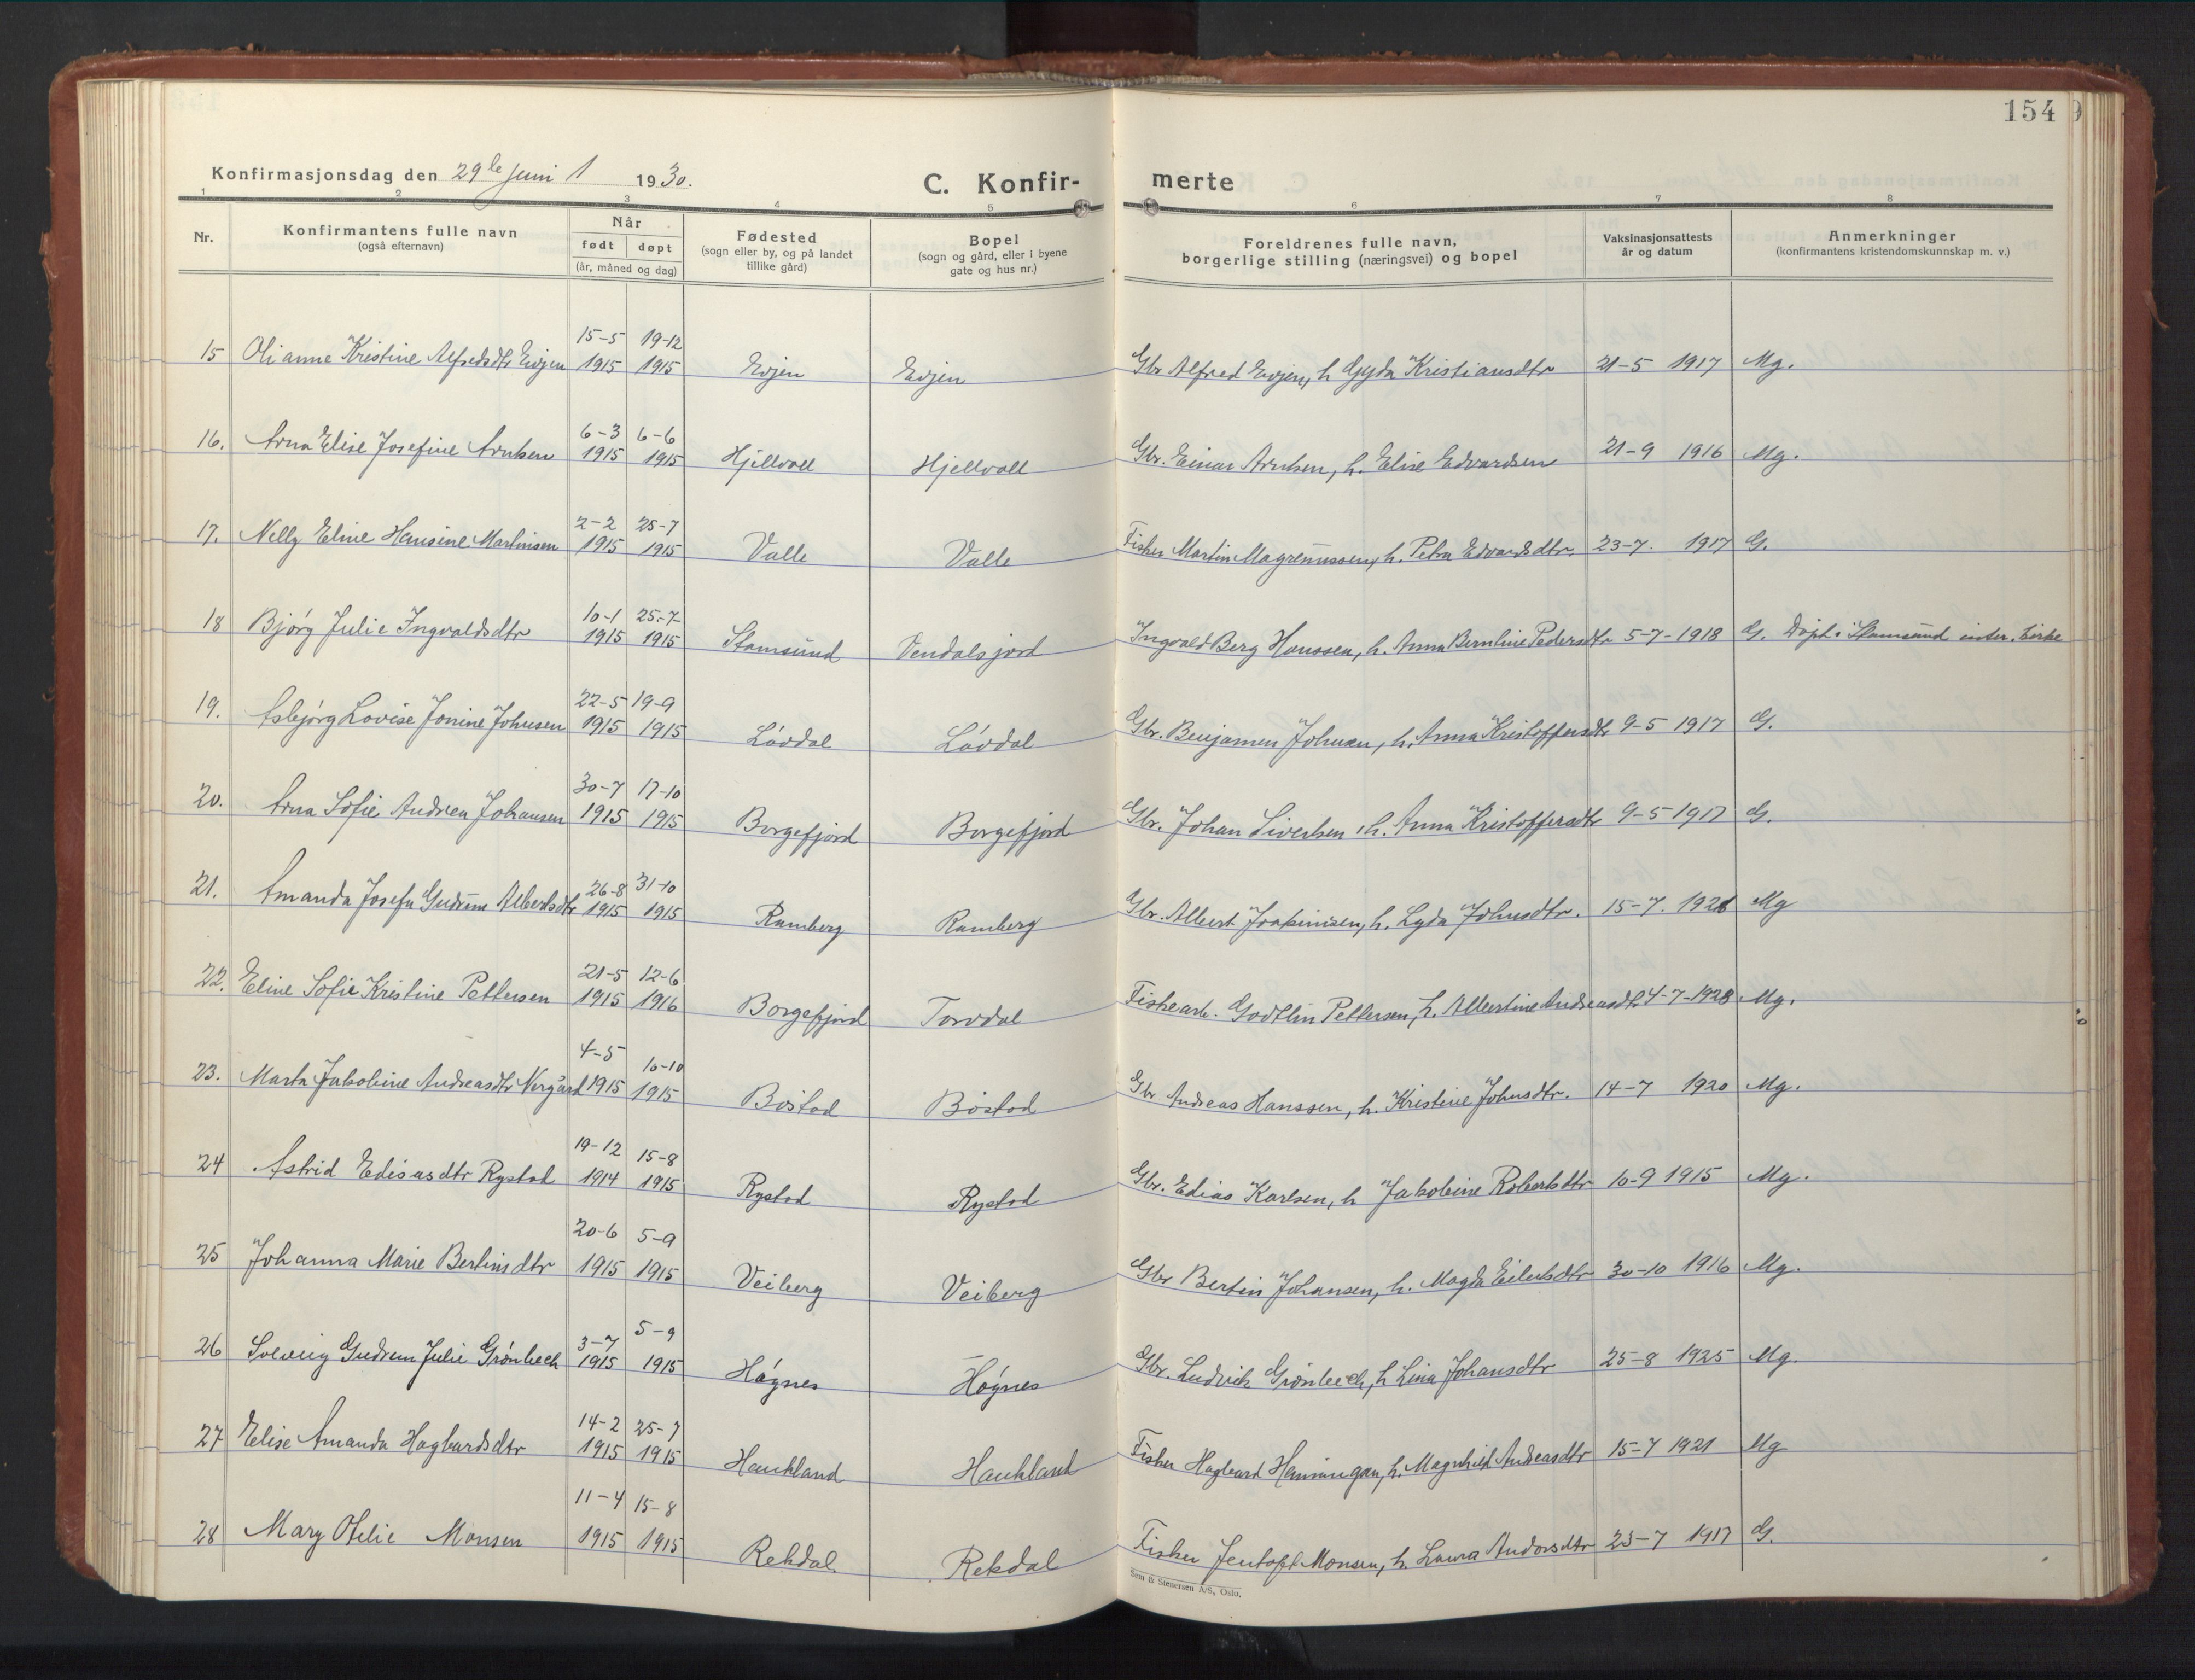 154
Konfirmasjonsdag den 29de juni 1930.
C. Konfir-
merte
1 2 3 4 5 6 7 8
Nr.
Konfirmantens fulle navn
(også efternavn)
Når
født døpt
(år, måned og dag)
Fødested
(sogn eller by, og på landet
tillike gård)
Bopel
(sogn og gård, eller i byene
gate og hus nr.)
Foreldrenes fulle navn,
borgerlige stilling (næringsvei) og bopel
Vaksinasjonsattests
år og datum
Anmerkninger
(konfirmantens kristendomskunnskap m. v.)
15-5 19-12
15 Olianne Kristine Alfredsdtr Evjen 1915 1915 Evjen Evjen Gbr Alfred Evjen, h Gyda Kristiansdtr 21-5 1917 Mg.
6-3 6-6
16. Arna Elise Josefine Arntsen 1915 1915 Hjellvoll Hjellvoll Gbr. Einar Arntsen, h. Elise Edvardsen 21-9 1916 Mg.
2-2 25-7
17. Nelly Eline Hansine Martinsen 1915 1915 Valle Valle Fisker Martin Magnussen, h. Petra Edvardsdtr. 23-7. 1917 G.
10-1 25-7-
18 Bjørg Julie Ingvaldsdtr 1915 1915 Stamsund Vendalsjord Ingvald Berg Hanssen, h. Anna Berntine Pedersdtr 5-7-1918 G. Døpt i Stamsund inter. kirke
22-5 19-9
19. Asbjørg Lovise Jonine Johnsen 1915 1915 Løvdal Løvdal Gbr. Benjamen Johnsen, h. Anna Kristoffersdtr 9-5 1917 G.
30-7 17-10
20. Arna Sofie Andrea Johansen 1915 1915 Borgefjord Borgefjord Gbr. Johan Sivertsen, h. Anna Kristoffersdtr 9-5 1917 G.
26-8 31-10
21. Amanda Josefa Gudrun Albertsdtr 1915 1915 Ramberg Ramberg Gbr. Albert Joakimsen, h. Lyda Johnsdtr. 15-7. 1921 Mg
21-5 12-6
22. Eline Sofie Kristine Pettersen 1915 1916 Borgefjord Torvdal Fiskearb. Godtlin Pettersen, h. Albertine Andreasdtr 4-7-1928 Mg.
4-5 10-10
23. Marta Jakobine Andreasdtr Nergård 1915 1915 Bøstad Bøstad Gbr Andreas Hanssen, h. Kristine Johnsdtr. 14-7 1920 Mg.
19-12 15-8
24 Astrid Ediasdtr Rystad 1914 1915 Rystad Rystad Gbr. Edias Karlsen, h Jakobine Robertsdtr 10-9 1915 Mg.
20-6 5-9
25 Johanna Marie Bertinsdtr 1915 1915 Veiberg Veiberg Gbr Bertin Johansen, h. Magda Eilertsdtr 30-10 1916 Mg.
3-7 5-9
26 Solveig Gudrun Julie Grønbech 1915 1915 Høgnes Høgnes Gbr. Ludvik Grønbech, h Lina Johansdtr 25-8 1925 Mg.
14-2 25-7
27 Elise Amanda Hagbardsdtr 1915 1915 Haukland Haukland Fisker Hagbard Henningsen, h. Magnhild Andreasdtr 15-7 1921 Mg
11-4 15-8
28 Mary Otelie Monsen 1915 1915 Rekdal Rekdal Fisker Jentoft Monsen, h. Laura Andorsdtr 23-7 1917 G.
Sem & Stenersen A/S, Oslo.